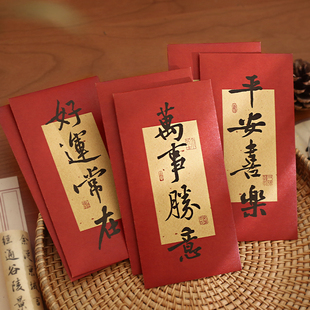 好運常在
萬事勝意
平安喜樂